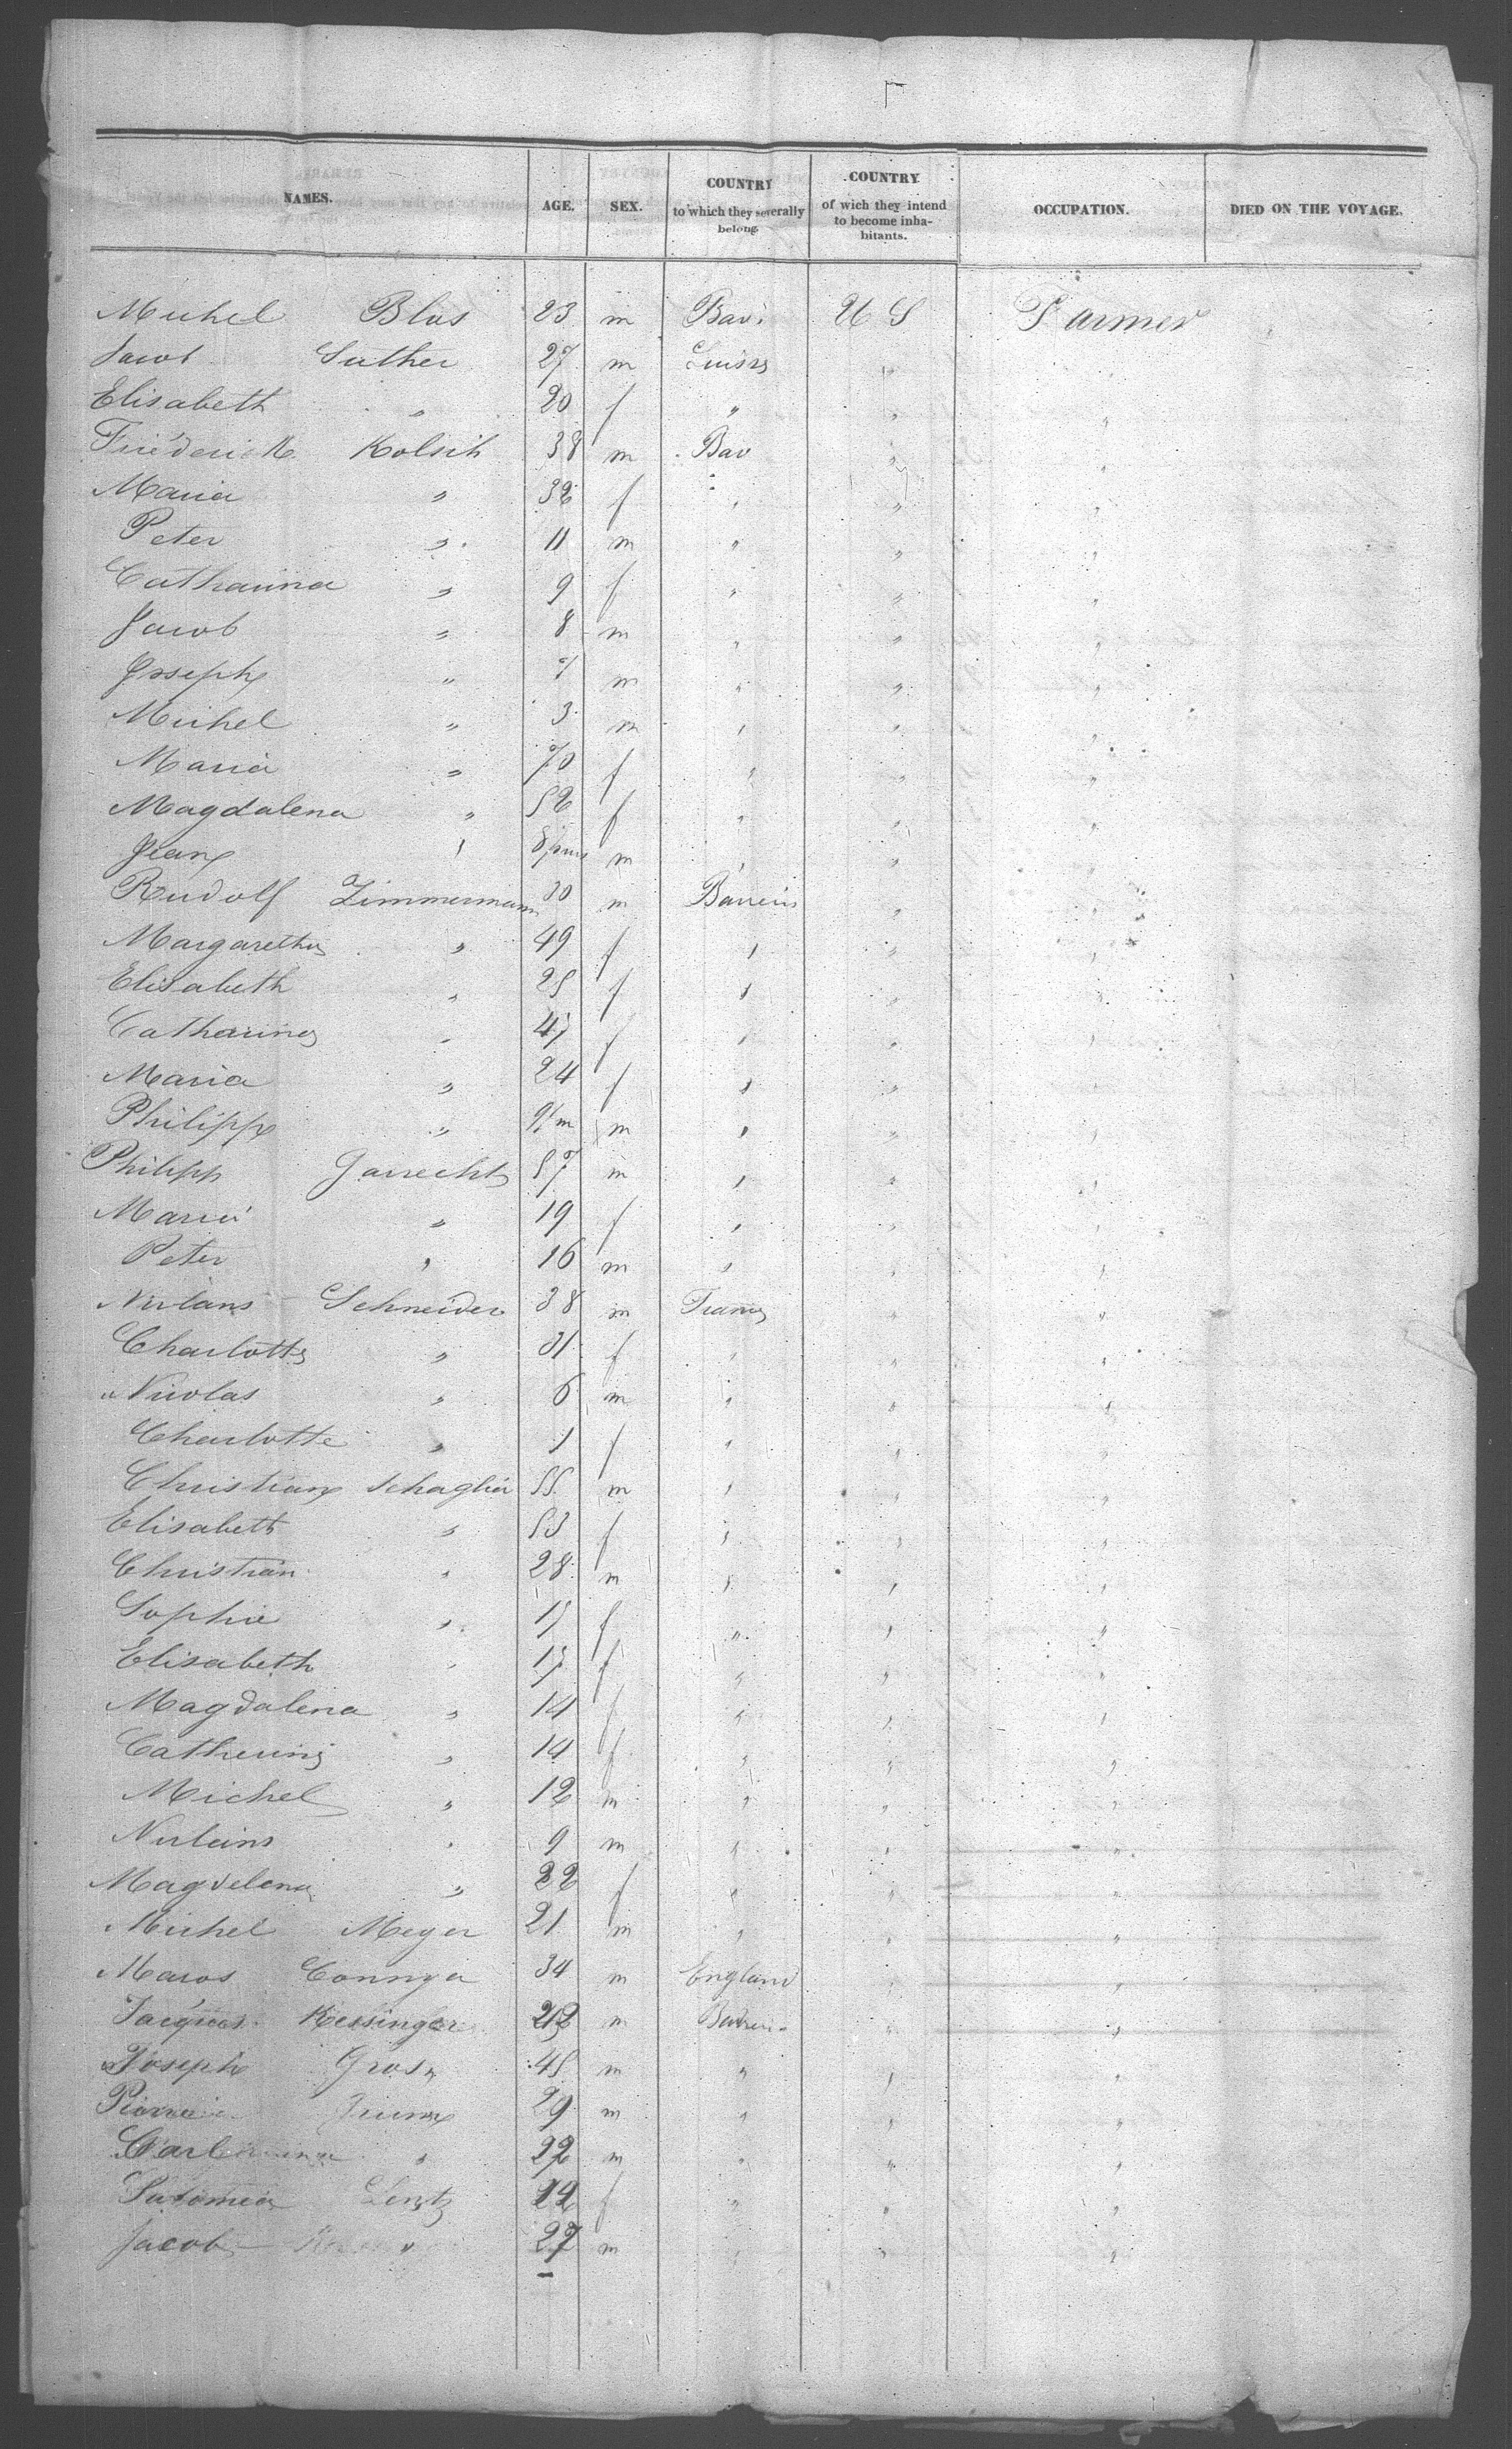 NAMES. AGE. SEX. COUNTRY to which they severally belong. COUNTRY of wich they intend to become inhabitants. OCCUPATION. DIED ON THE VOYAGE.
Michel Blas 23 m Bav. U S Farmer
Jacob Suther 27 m Suisse " "
Elisabeth " 20 f " " "
Friederick Kolsch 38 m Bav " "
Maria " 32 f " " "
Peter " 11 m " " "
Catharina " 9 f " " "
Jacob " 8 m " " "
Joseph " 7 m " " "
Michel " 3 m " " "
Maria " 70 f " " "
Magdalena " 52 f " " "
Jean " 8 m " "
Rudolf Zimmermann 30 m Baviere " "
Margaretha " 49 f " " "
Elisabeth " 25 f " " "
Catharina " 47 f " " "
Maria " 24 f " " "
Philipp " 9 m m " " "
Philipp Garrecht 57 m " " "
Maria " 19 f " " "
Peter " 16 m " " "
Nicolaus Schneider 38 m France " "
Charlotte " 31 f " " "
Nicolas " 6 m " " "
Charlotte " 1 f " " "
Christian Schaglia 55 m " " "
Elisabeth " 53 f " " "
Christian " 28 m " " "
Sophie " 17 f " " "
Elisabeth " 17 f " " "
Magdalena " 14 f " " "
Catherine " 14 f " " "
Michel " 12 m " " "
Nicolaus " 9 m " " "
Magdelena " 22 f " " "
Michel Meyer 21 m " " "
Marcos 34 m England " "
Jacques Kessinger m " "
Joseph Gross 45 m " " "
Pierre 29 m " " "
" 22 m " " "
Salomea Lentz f " " "
Jacob " 27 m " " "